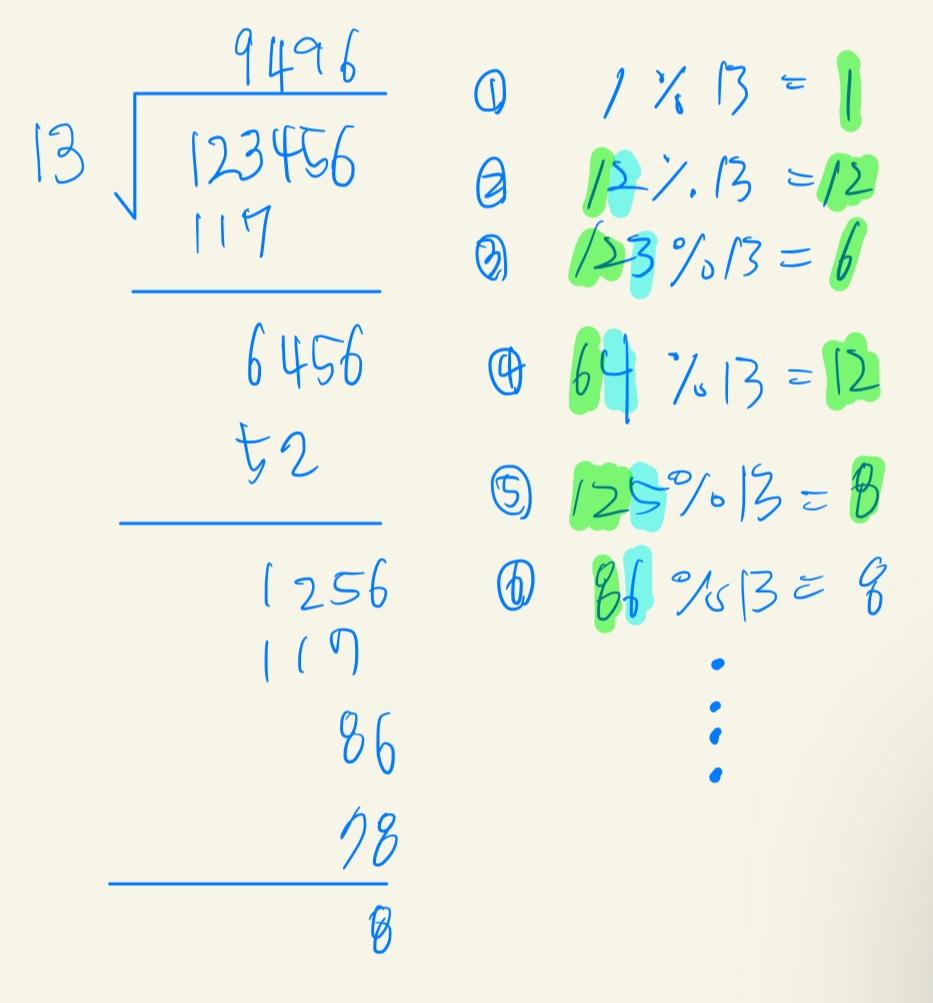 9496
13 123456
117
6456
52
1256
117
86
78
8
① 1 % 13 = 1
② 12 % 13 = 12
③ 123 % 13 = 6
④ 64 % 13 = 12
⑤ 125 % 13 = 8
⑥ 86 % 13 = 8